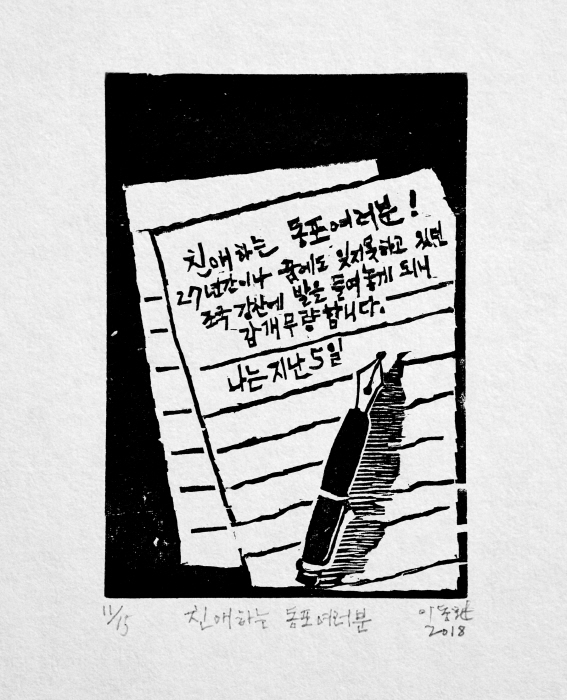 친애하는 동포여러분!
27년간이나 꿈에도 잊지못하고 있던
조국 강산에 발을 들여놓게 되니
감개무량합니다.
나는 지난 5일
11/15 친애하는 동포여러분 이동환
2018